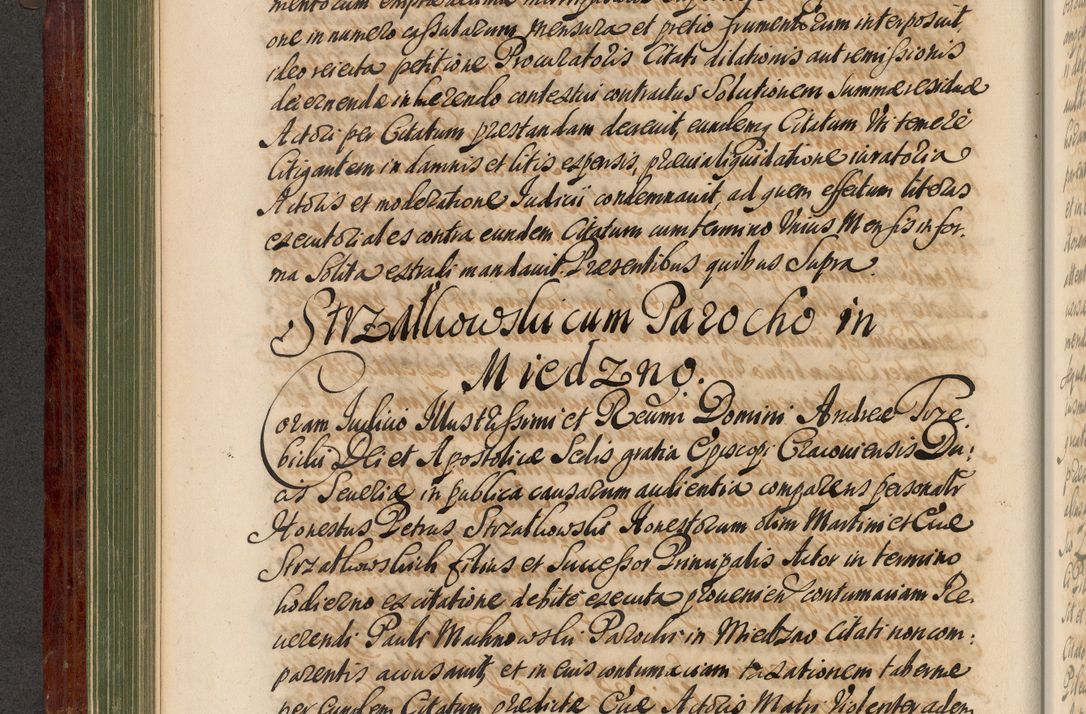 one in numero cassubarum, mensura et pretio frumentorum interposuit,
ideo reiecta petitione Procuratoris Citati dilationis aut remissionis
decernendæ inhærendo contextui contractus Solutionem Summæ residuæ
Actori per Citatum præstandam decreuit, eundemq Citatum Vti temerè
litigantem in damnis et litis expensis, præuia liquidatione iuratoria
Actoris et moderatione Iudicii condemnauit, ad quem effectum literas
executoriales contra eundem Citatum cum termino Vnius Mensis in for,
ma Solita extrahi mandauit. Præsentibus quibus Supra.
Strzałkowski cum Parocho in
Miedzno.
Coram Iudicio Illustrissimi et Reumi Domini Andreæ Trze,
bicki Dei et Apostolicæ Sedis gratia Episcopi Cracouiensis Du,
cis Seueriæ in publica causarum audientia comparens personalr
Honestus Petrus Strzałkowski Honestorum olim Martini et Euæ
Strzałkowskich filius et Successor Principalis Actor in termino
hodierno ex citatione debitè executa prouenien contumaciam Re,
uerendi Pauli Machnowski Parochi in Miedzno Citati non com,
parentis accusauit, et in eius contumaciam taxationem tabernæ
per eundem Citatum prædictæ Euæ Actoris Matri Violenter adem